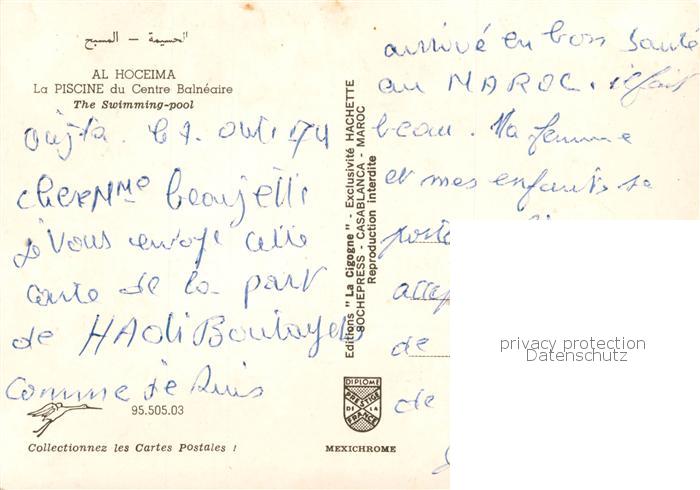 الحسيمة — المسبح
AL HOCEIMA
La PISCINE du Centre Balnéaire
The Swimming-pool
Oujda. le 1. Out 174
cher Mme
je vous envoye cette
carte de la part
de HAdi Boutayeb
comme je suis
95.505.03
Collectionnez les Cartes Postales !
Editions "La Cigogne" - Exclusivité HACHETTE
SOCHEPRESS - CASABLANCA - MAROC
Reproduction interdite
DIPLOME
PRESTIGE
DE LA
FRANCE
MEXICHROME
arrivé en bon Santé
au MAROC. il fait
beau. Ma femme
et mes enfants se
porte
accep
de
de
privacy protection
Datenschutz